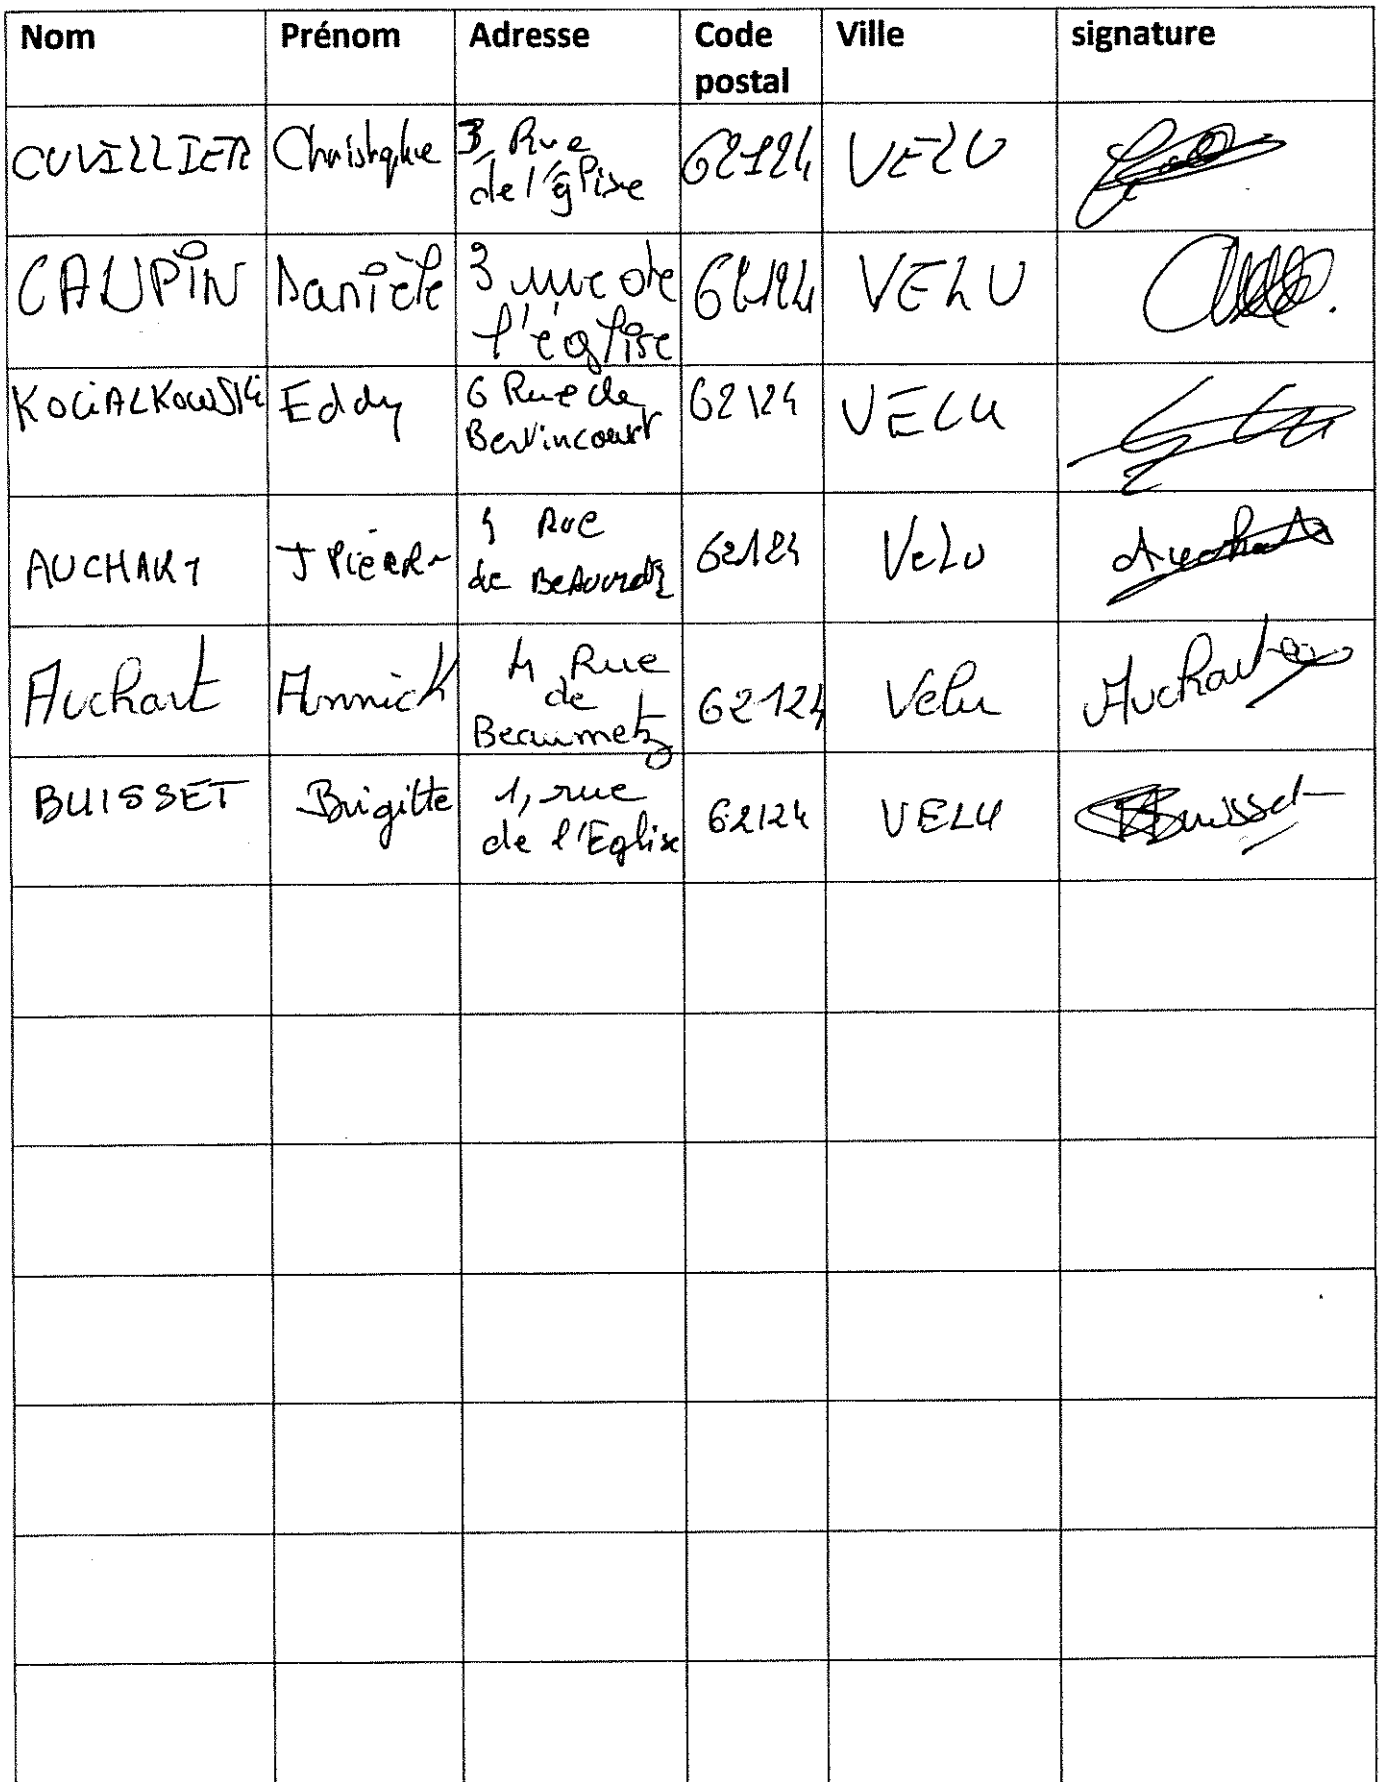 Nom Prénom Adresse Code postal Ville signature
CUVILLIER Christophe 3, Rue de l'église 62124 VELU
CAUPIN Danièle 3 rue de l'église 62124 VELU
KOCIALKOWSKI Eddy 6 Rue de Bertincourt 62124 VELU
AUCHART J Pierre 4 Rue de Beaumetz 62124 Velu Auchart
Auchart Annick 4 Rue de Beaumetz 62124 Velu Auchart
BUISSET Brigitte 1, rue de l'Eglise 62124 VELU Buisset